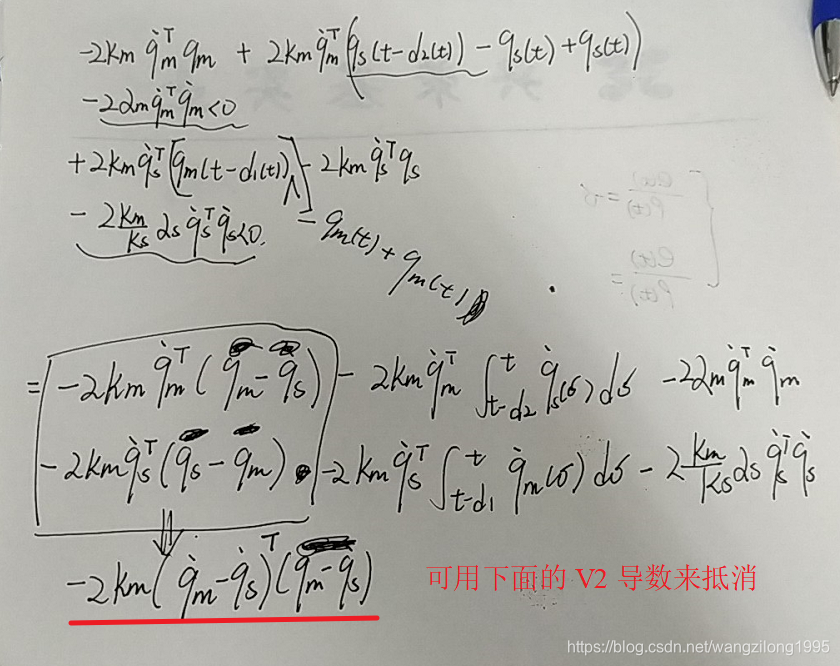 -2km q̇m^T qm + 2km q̇m^T (qs(t-d2(t)) - qs(t) + qs(t))
-2αm q̇m^T q̇m<0
+2km q̇s^T [qm(t-d1(t))] - 2km q̇s^T qs
- 2 km/ks αs q̇s^T q̇s<0.
- qm(t) + qm(t)
= -2km q̇m^T (qm - qs) - 2km q̇m^T ∫_{t-d2}^{t} q̇s(σ) dσ - 2αm q̇m^T q̇m
-2km q̇s^T (qs - qm) - 2km q̇s^T ∫_{t-d1}^{t} q̇m(σ) dσ - 2 km/ks αs q̇s^T q̇s
⇓
-2km (q̇m - q̇s)^T (qm - qs)
可用下面的 V2 导数来抵消
https://blog.csdn.net/wangzilong1995